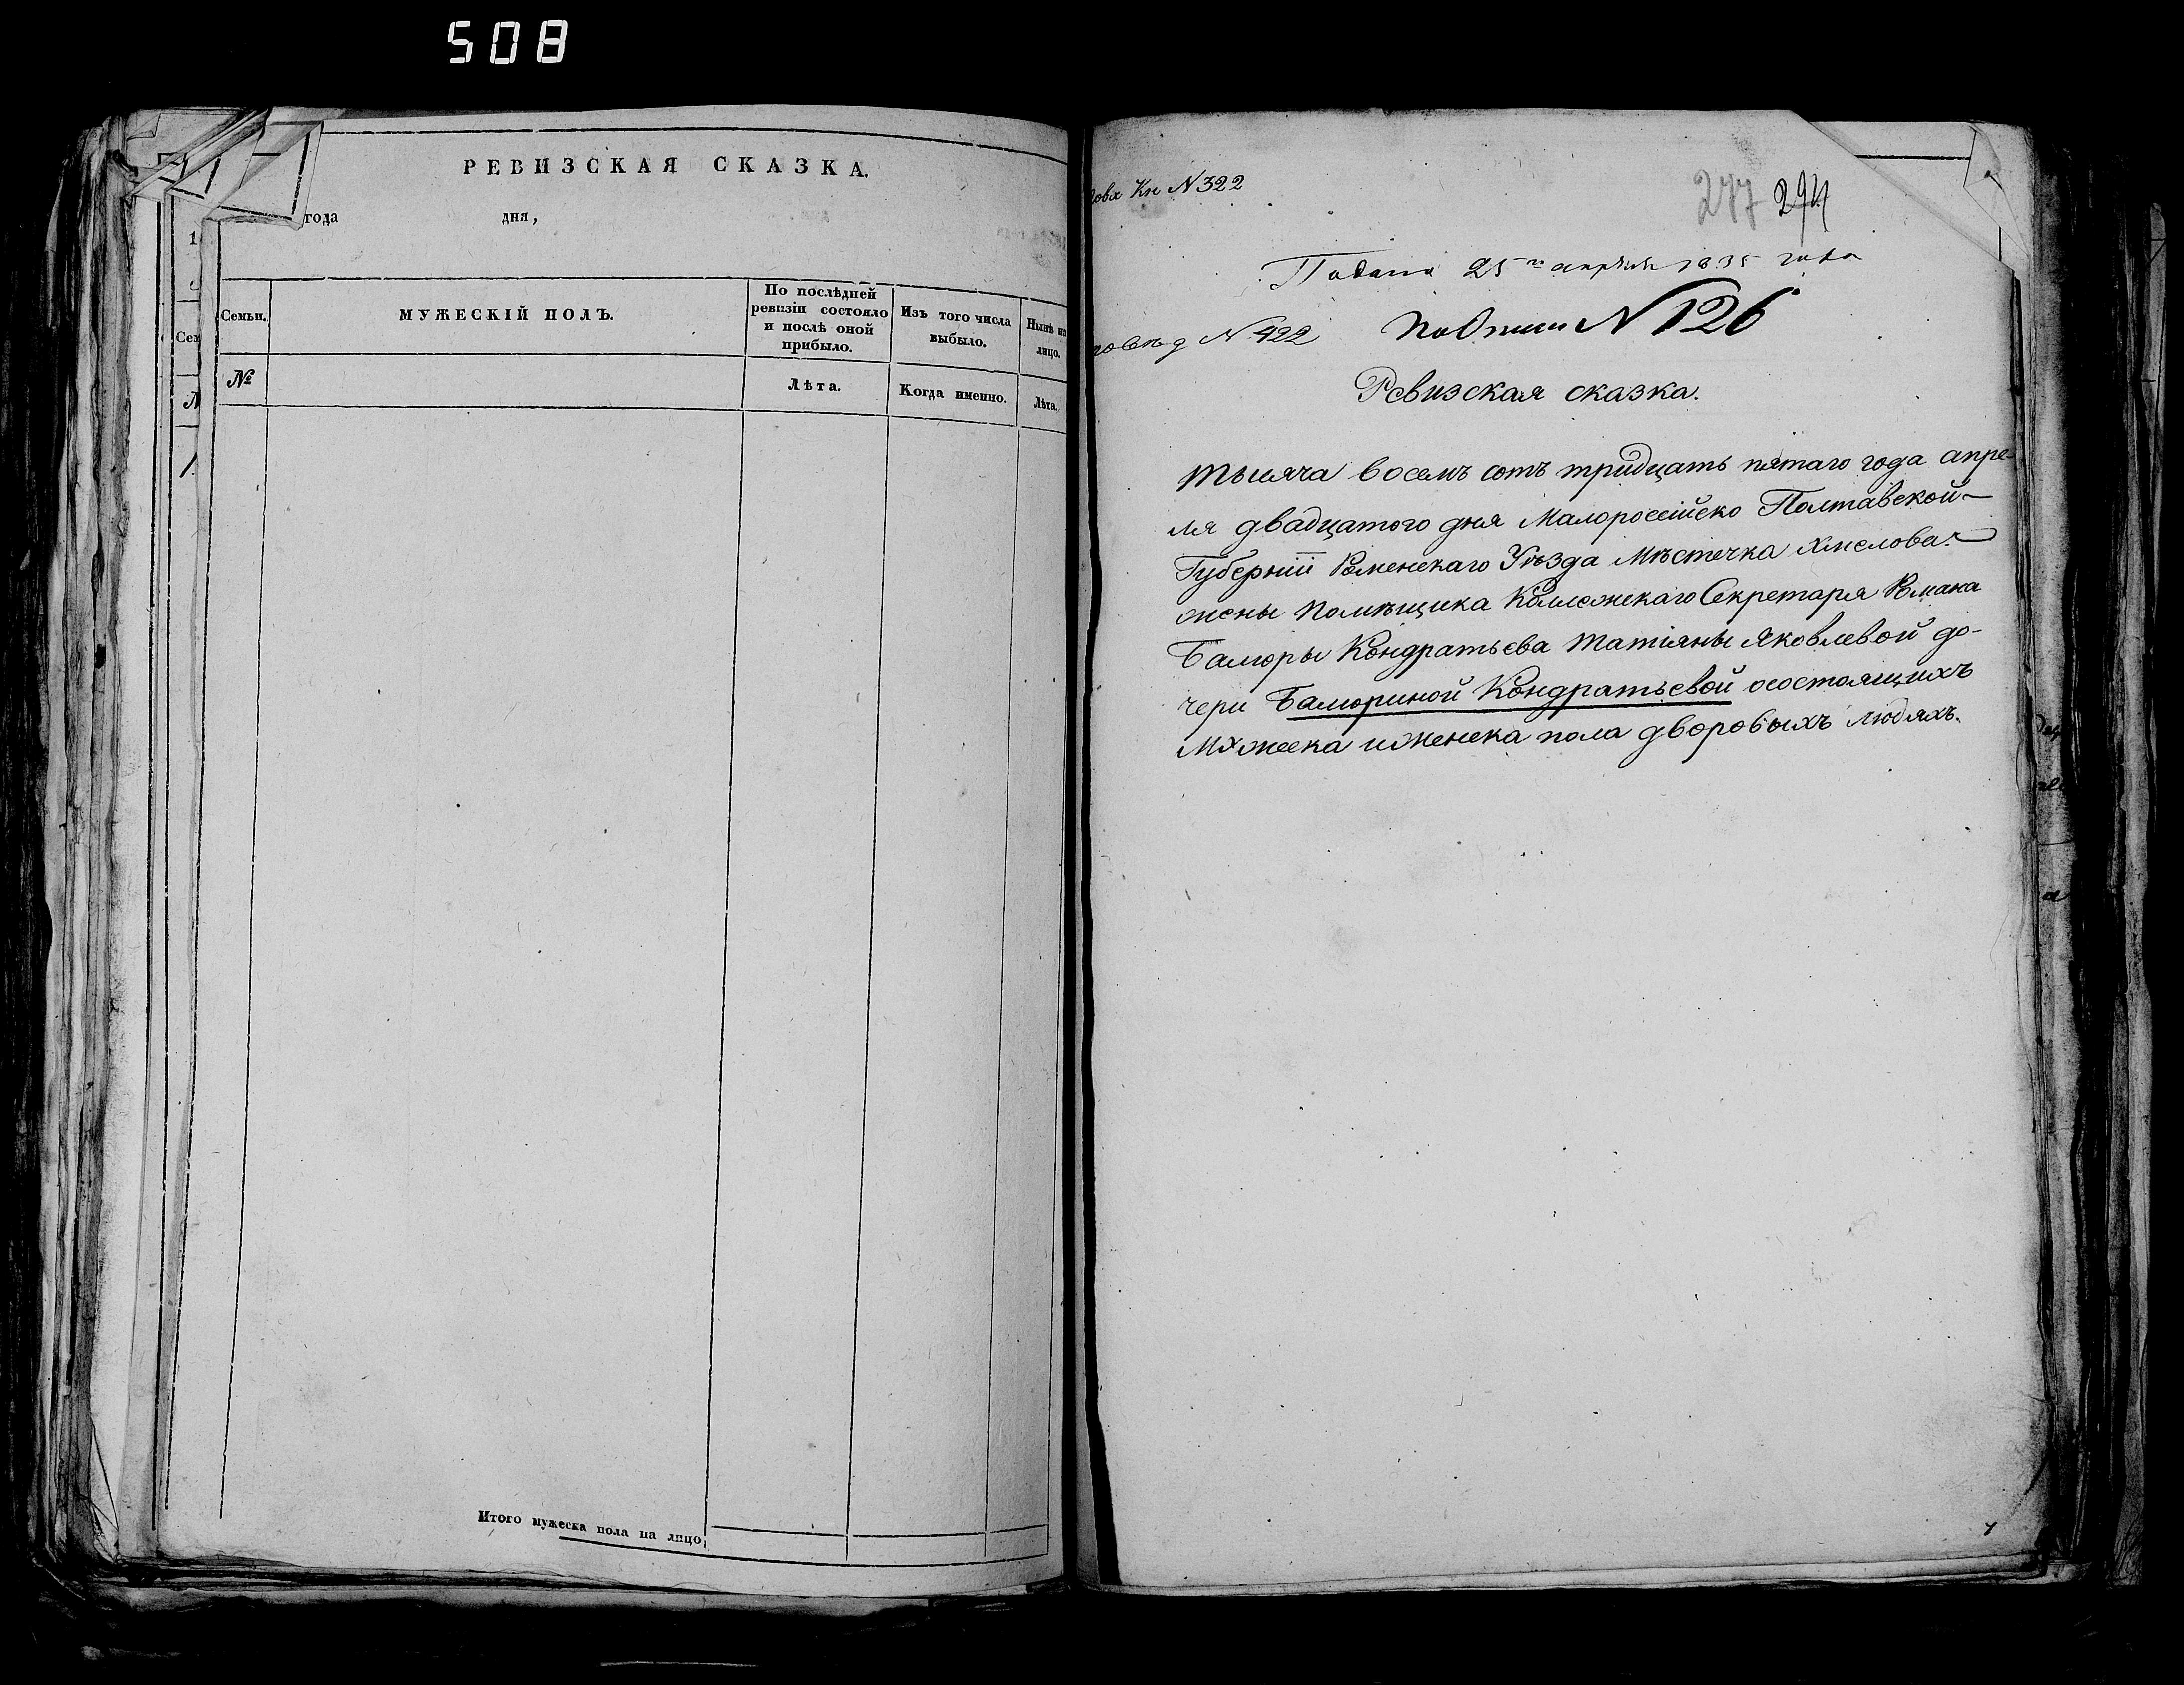 508
РЕВИЗСКАЯ СКАЗКА.
года дня,
Семьи.
МУЖЕСКІЙ ПОЛЪ.
По послѣдней
ревизіи состояло
и послѣ оной
прибыло.
Изъ того числа
выбыло.
Нынѣ на
лицо.
№
Лѣта.
Когда именно.
Лѣта.
Итого мужеска пола на лицо,
Кн N 322
277 294
Подана 25 го апрѣля 1835 года
N 422
N 126
Ревизская сказка.
тысяча восемъ сотъ тридцать пятаго года апре-
ля двадцатого дня Малороссійско Полтавской
Губерніи Роменскаго Уѣзда Мѣстечка Хмелова
жены Помѣщика Коллежскаго Секретаря Романа
Балюры Кондратьева Татіяны Яковлевой до-
чери Балюриной Кондратьевой осостоящихъ
Мужеска иженска пола дворовыхъ людяхъ.